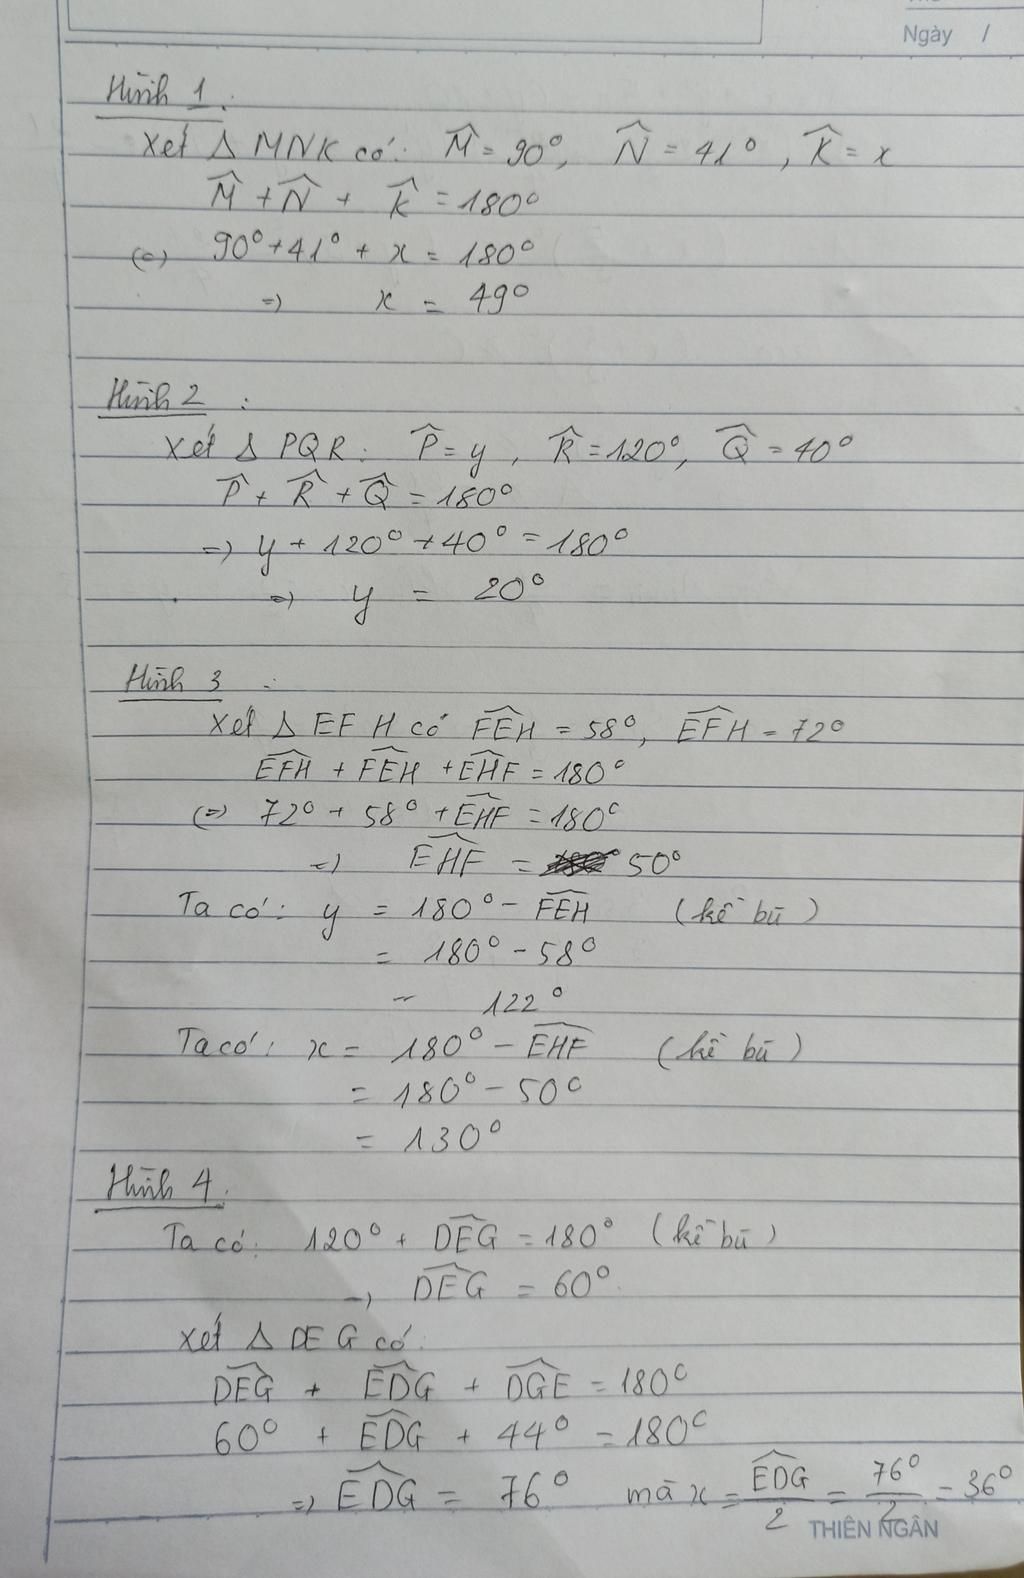 Ngày /
Hình 1 :
Xét Δ MNK có: M̂ = 90°, N̂ = 41°, K̂ = x
M̂ + N̂ + K̂ = 180°
(=) 90° + 41° + x = 180°
=) x = 49°
Hình 2 :
Xét Δ PQR : P̂ = y, R̂ = 120°, Q̂ = 40°
P̂ + R̂ + Q̂ = 180°
=) y + 120° + 40° = 180°
=) y = 20°
Hình 3 :
Xét Δ EFH có FÊH = 58°, EF̂H = 72°
EF̂H + FÊH + EĤF = 180°
(=) 72° + 58° + EĤF = 180°
=) EĤF = 50°
Ta có: y = 180° - FÊH (kề bù)
= 180° - 58°
= 122°
Ta có: x = 180° - EĤF (kề bù)
= 180° - 50°
= 130°
Hình 4.
Ta có: 120° + DÊG = 180° (kề bù)
=) DÊG = 60°.
Xét Δ DEG có:
DÊG + ED̂G + DĜE = 180°
60° + ED̂G + 44° = 180°
=) ED̂G = 76° mà x = ED̂G/2 = 76°/2 = 36°
THIÊN NGÂN